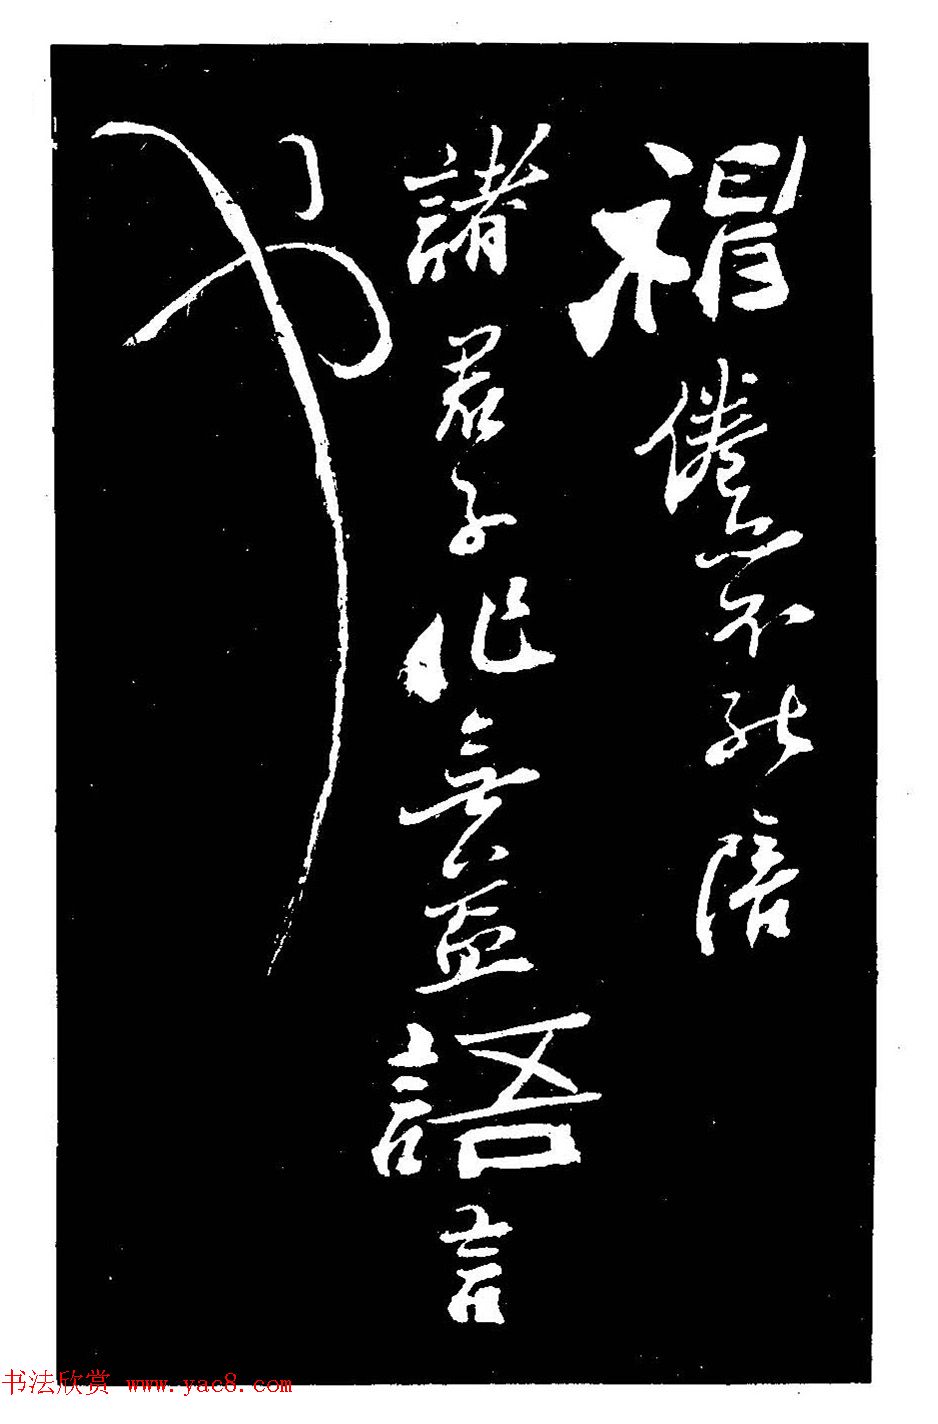 神倦亦不能陪
諸君子作無益語言
也
书法欣赏 www.yac8.com